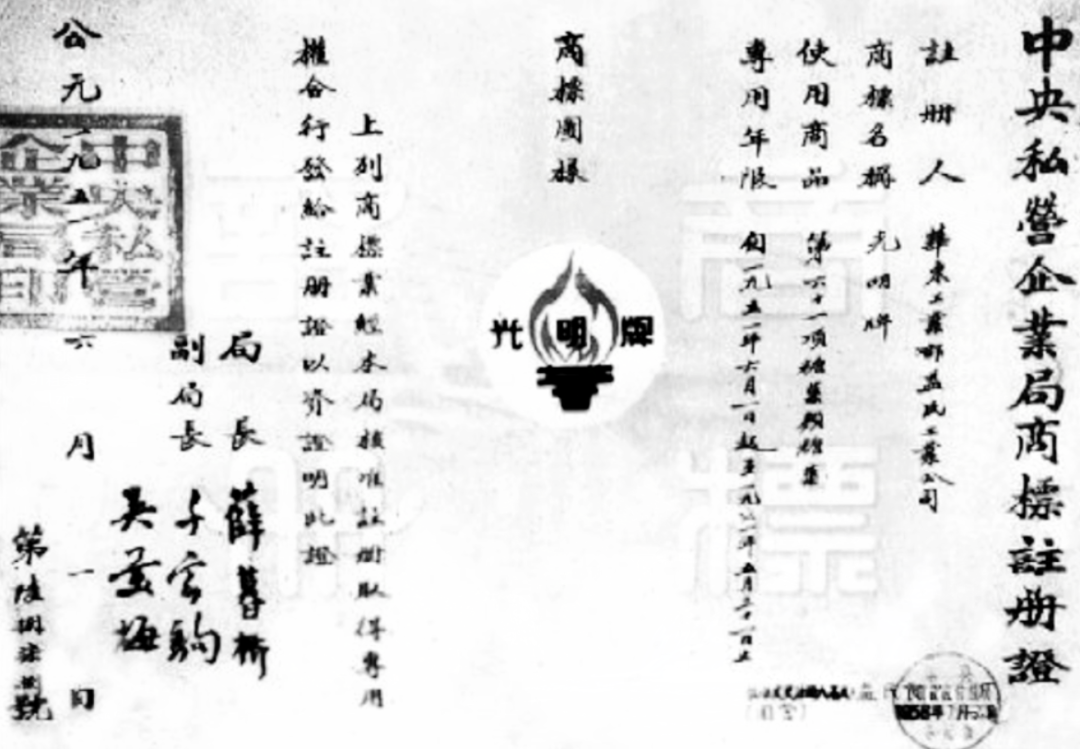 中央私營企業局商標註冊證
註冊人 華東工業部益民工業公司
商標名稱 光明牌
使用商品 第六十一項糖菓類糖菓
專用年限 自一九五一年六月一日起至一九六一年五月三十一日止
商標圖樣
光明牌
上列商標業經本局核准註冊取得專用
權合行發給註冊證以資證明此證
局長 薛暮橋
副局長 千家駒
吳羹梅
公元一九五一年六月一日
中央私營企業局印
商標